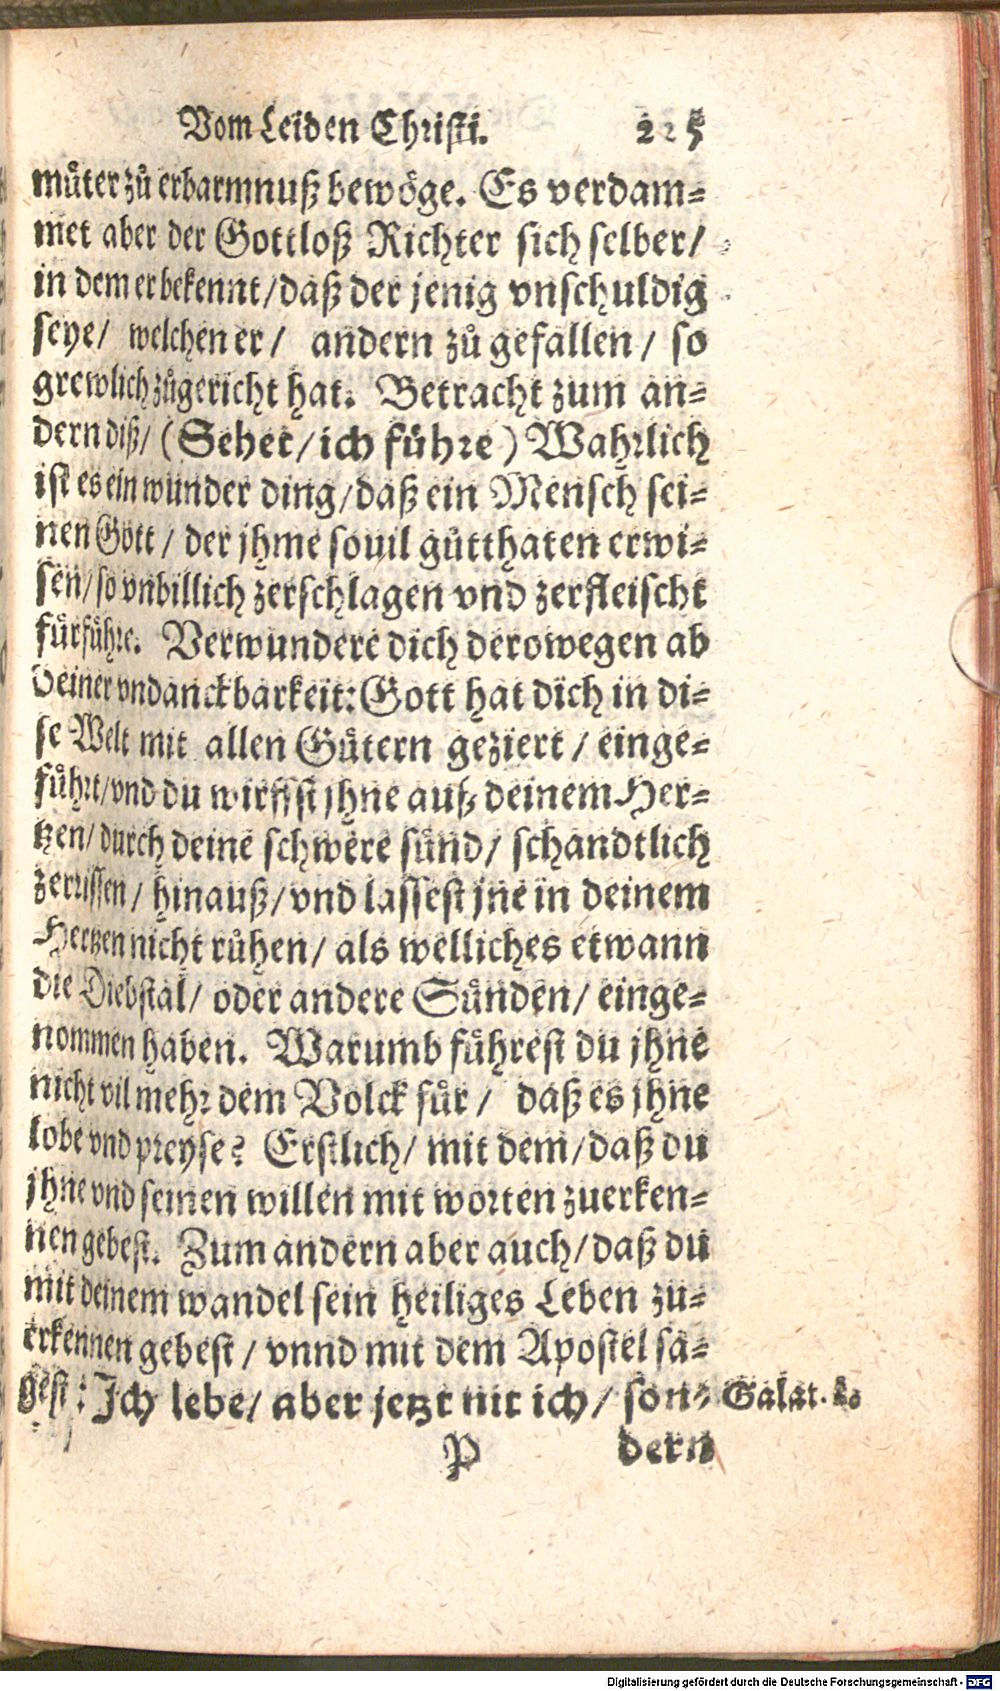 Vom Leiden Christi. 225
muͤter zuͤ erbarmnuß bewoͤge. Es verdam⸗
met aber der Gottloß Richter sich selber/
in dem er bekennt/daß der jenig vnschuldig
seye/ welchen er/ andern zuͤ gefallen/ so
grewlich zuͤgericht hat. Betracht zum an⸗
dern diß/ (Sehet/ich fuͤhre) Wahrlich
ist es ein wunder ding/daß ein Mensch sei⸗
nen Gott/ der jhme souil guͤtthaten erwi⸗
sen/so vnbillich zerschlagen vnd zerfleischt
fuͤrfuͤhre. Verwundere dich derowegen ab
deiner vndanckbarkeit: Gott hat dich in di⸗
se Welt mit allen Guͤtern geziert/ einge⸗
fuͤhrt/vnd du wirffst jhne auß deinem Her⸗
tzen/durch deine schwere suͤnd/ schandtlich
zerrissen/ hinauß/vnd lassest jne in deinem
Hertzen nicht ruͤhen/ als welliches etwann
die Diebstal/ oder andere Suͤnden/ einge⸗
nommen haben. Warumb fuͤhrest du jhne
nicht vil mehr dem Volck fuͤr/ daß es jhne
lobe vnd preyse? Erstlich/ mit dem/daß du
jhne vnd seinen willen mit worten zuerken⸗
nen gebest. Zum andern aber auch/daß du
mit deinem wandel sein heiliges Leben zu⸗
erkennen gebest/ vnnd mit dem Apostel sa⸗
gest: Ich lebe/ aber jetzt nit ich/ son⸗ Galat. 2.
P dern
Digitalisierung gefördert durch die Deutsche Forschungsgemeinschaft - DFG